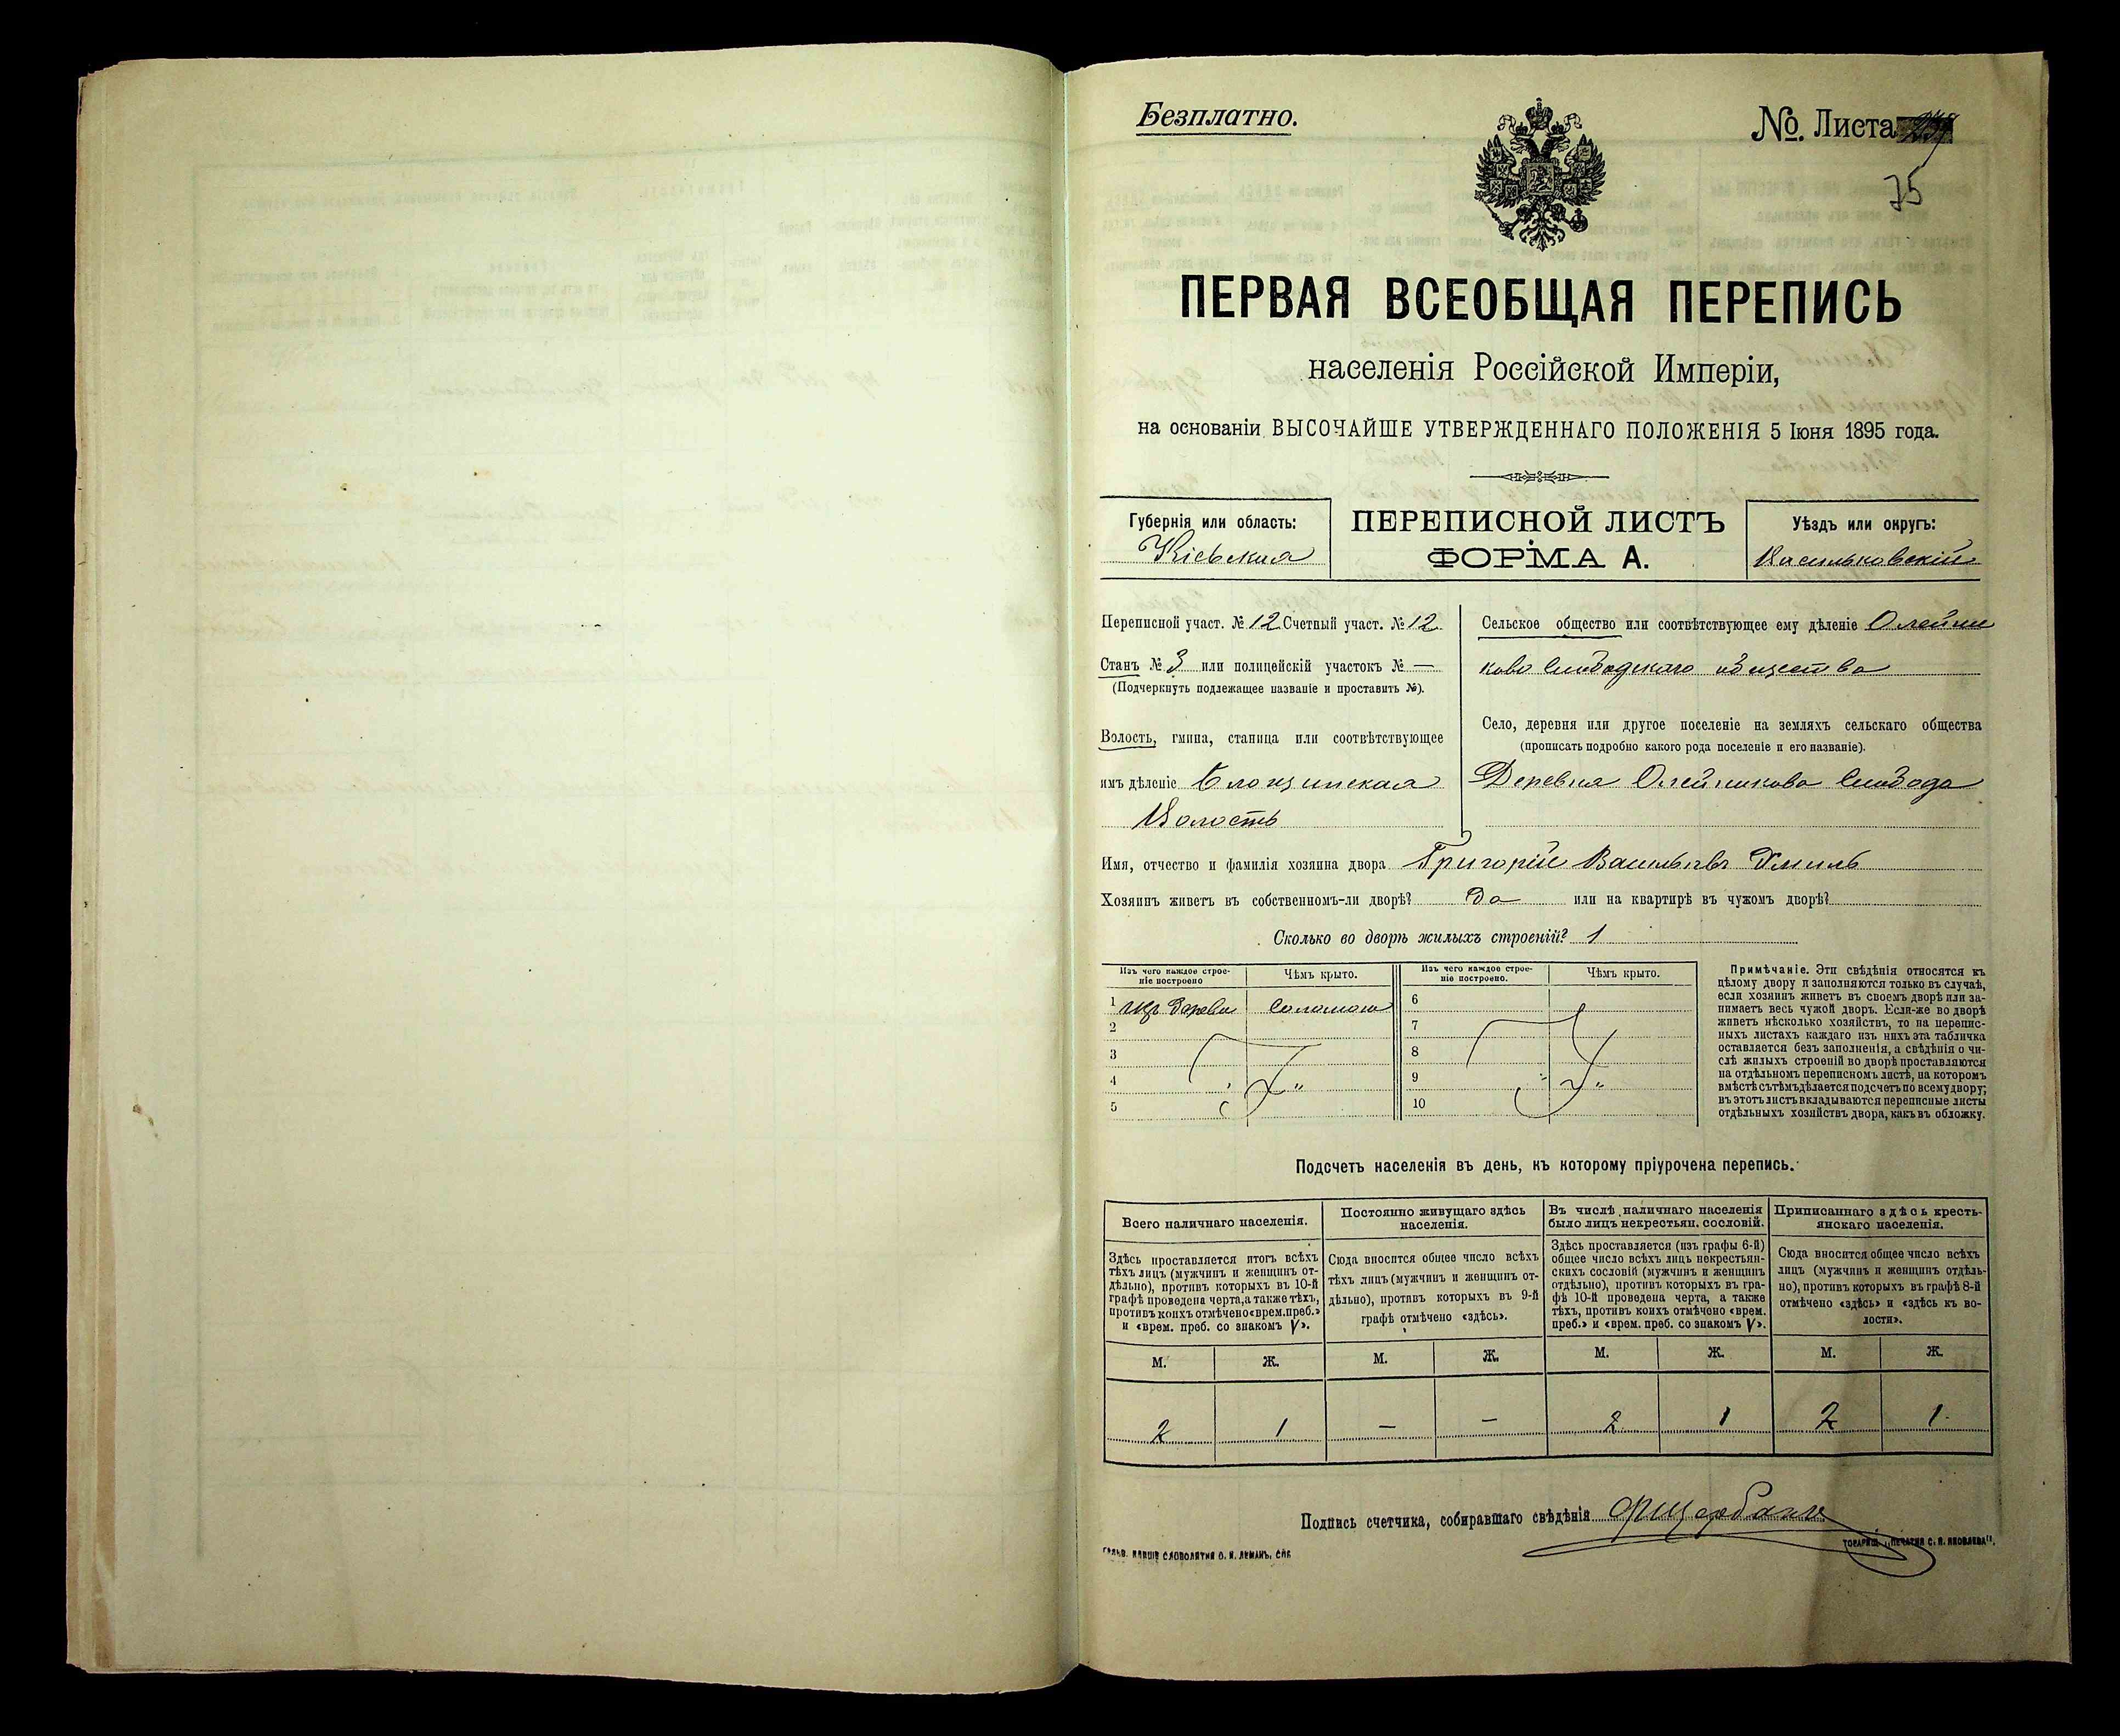 Безплатно.
№. Листа
75
ПЕРВАЯ ВСЕОБЩАЯ ПЕРЕПИСЬ
населенія Россійской Имперіи,
на основаніи ВЫСОЧАЙШЕ УТВЕРЖДЕННАГО ПОЛОЖЕНІЯ 5 Іюня 1895 года.
Губернія или область:
Кіевская
ПЕРЕПИСНОЙ ЛИСТЪ
ФОРМА А.
Уѣздъ или округъ:
Васильковскій
Переписной участ. № 12 Счетный участ. № 12
Станъ № 3 или полицейскій участокъ № —
(Подчеркнуть подлежащее названіе и проставить №).
Волость, гмина, станица или соотвѣтствующее
имъ дѣленіе
Волость
Сельское общество или соотвѣтствующее ему дѣленіе Олейни
ково Слободскаго общества
Село, деревня или другое поселеніе на земляхъ сельскаго общества
(прописать подробно какого рода поселеніе и его названіе).
Деревня Олейникова Слобода
Имя, отчество и фамилія хозяина двора Григорій Васильевъ
Хозяинъ живетъ въ собственномъ-ли дворѣ? да или на квартирѣ въ чужомъ дворѣ?
Сколько во дворѣ жилыхъ строеній? 1
Изъ чего каждое строе-
ніе построено
Чѣмъ крыто.
Изъ чего каждое строе-
ніе построено.
Чѣмъ крыто.
1 изъ дерева Соломою 6
2 7
3 8
4 9
5 10
Примѣчаніе. Эти свѣдѣнія относятся къ
цѣлому двору и заполняются только въ случаѣ,
если хозяинъ живетъ въ своемъ дворѣ или за-
нимаетъ весь чужой дворъ. Если-же во дворѣ
живетъ нѣсколько хозяйствъ, то на перепис-
ныхъ листахъ каждаго изъ нихъ эта табличка
оставляется безъ заполненія, а свѣдѣнія о чи-
слѣ жилыхъ строеній во дворѣ проставляются
на отдѣльномъ переписномъ листѣ, на которомъ
вмѣстѣ съ тѣмъ дѣлается подсчетъ по всему двору;
въ этотъ листъ вкладываются переписные листы
отдѣльныхъ хозяйствъ двора, какъ въ обложку.
Подсчетъ населенія въ день, къ которому пріурочена перепись.
Всего наличнаго населенія.
Постоянно живущаго здѣсь
населенія.
Въ числѣ наличнаго населенія
было лицъ некрестьян. сословій.
Приписаннаго здѣсь кресть-
янскаго населенія.
Здѣсь проставляется итогъ всѣхъ
тѣхъ лицъ (мужчинъ и женщинъ от-
дѣльно), противъ которыхъ въ 10-й
графѣ проведена черта, а также тѣхъ,
противъ коихъ отмѣчено «врем. преб.»
и «врем. преб. со знакомъ V».
Сюда вносится общее число всѣхъ
тѣхъ лицъ (мужчинъ и женщинъ от-
дѣльно), противъ которыхъ въ 9-й
графѣ отмѣчено «здѣсь».
Здѣсь проставляется (изъ графы 6-й)
общее число всѣхъ лицъ некрестьян-
скихъ сословій (мужчинъ и женщинъ
отдѣльно), противъ которыхъ въ гра-
фѣ 10-й проведена черта, а также
тѣхъ, противъ коихъ отмѣчено «врем.
преб.» и «врем. преб. со знакомъ V».
Сюда вносится общее число всѣхъ
лицъ (мужчинъ и женщинъ отдѣль-
но), противъ которыхъ въ графѣ 8-й
отмѣчено «здѣсь» и «здѣсь къ во-
лости».
М. Ж. М. Ж. М. Ж. М. Ж.
2 1 — — 2 1 2 1
Подпись счетчика, собиравшаго свѣдѣнія
СЛОВОЛИТНЯ О. И. ЛЕМАНЪ, СПБ
ТОВАРИЩ. „ПЕЧАТНЯ С. П. ЯКОВЛЕВА".